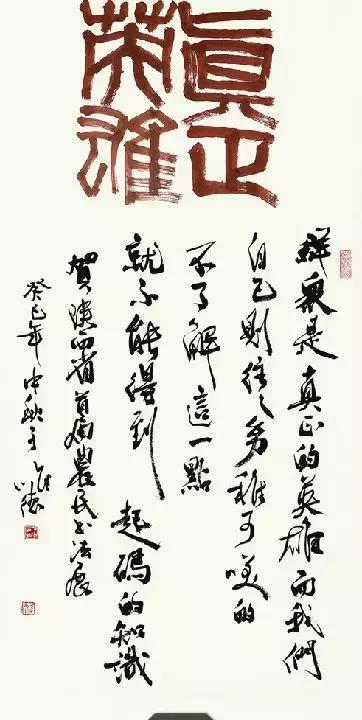 眞正
英雄
群衆是真正的英雄而我們
自己則往〻幼稚可咲的
不了解這一點
就不能得到起碼的知識
賀陝西省首屆農民書法展
癸巳年中秋于